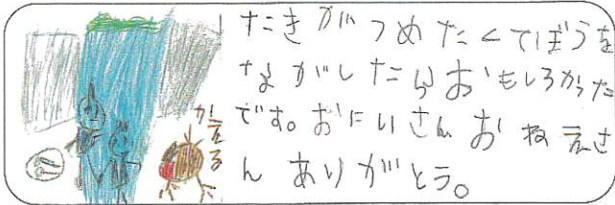 たきがつめたくてぼうを
ながしたらおもしろかった
です。おにいさんおねえさ
んありがとう。
かえる